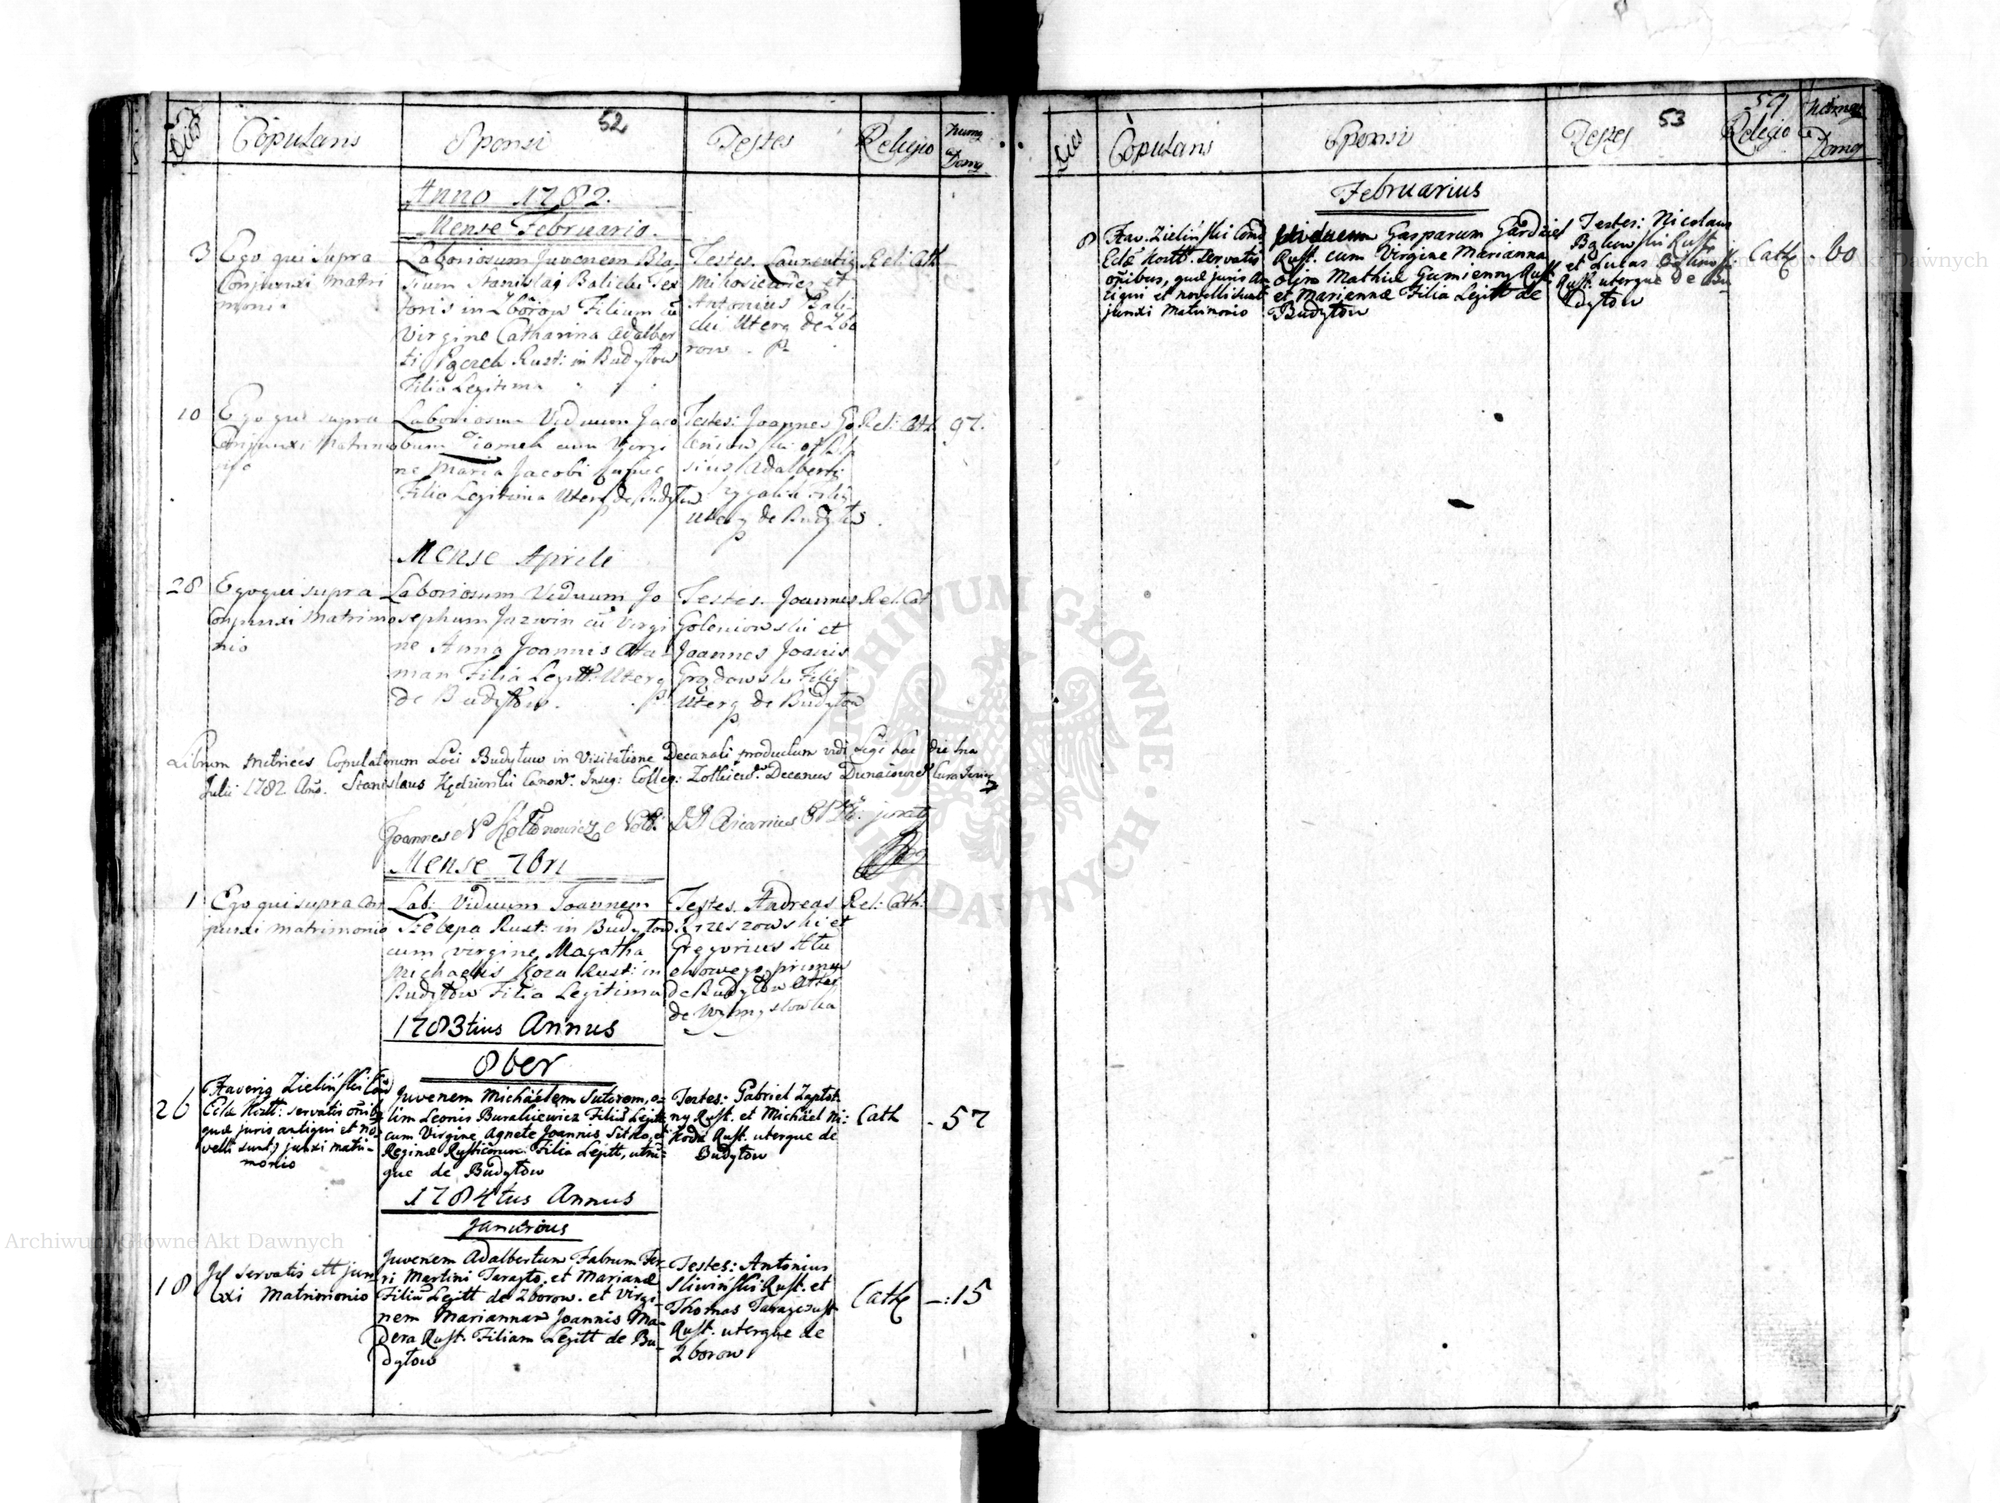 52
Dies Copulans Sponsi Testes Religio Numg Domg
Anno 1782.
Mense Februario.
3 Ego qui supra
Conjunxi Matri
monio
Laboriosum Juvenem Bla-
sium Stanislai Balicki Tex
toris in Zborow Filium cū
Virgine Catharina Adalber
ti Rust: in Budyłow
Filia Legitima
Testes. Laurentig
et
Antonius Bali-
cki Uterq de Zbo
row
Rel: Cath
10 Ego qui supra
Conjunxi Matrimo
nio
Laboriosum Viduum Jaco
bum cum Virgi
ne Maria Jacobi
Filia Legitima Uterq de Budyłow
Testes: Joannes Go
leniowski et
Adalberti
Filig
Uterq de Budyłow
Rel: Cath 97.
Mense Aprili
28 Ego qui supra
Conjunxi Matrimo
nio
Laboriosum Viduum Jo
sephum Jazwin cū Virgi
ne Anna Joannis Ata-
man Filia Legitt: Uterq
de Budyłow.
Testes. Joannes
Goleniowski et
Joannes Joanis
Grodowski Filig
Uterq de Budyłow
Rel. Cat
Librum Metrices Copulatorum Loci Budyłow in Visitatione Decanali productum vidi Legi hac die
Julii 1782 Ano. Stanislaus Kędzierski Canon: Insig: Colleg: Zołkiew: Decanus Dunajow
Joannes Vicarius
Mense 7bri
1 Ego qui supra Con
junxi matrimonio
Lab: Viduum Joannem
Rust: in Budyłow
cum virgine Magatha
Michaelis Koza Rust: in
Budyłow Filia Legitima
Testes. Andreas
Rzeszowski et
Gregorius
primus
de Budyłow Alter
de Wymysłowka
Rel: Cath:
1783tius Annus
8ber
26 Xaverig Zieliński Cōd
Ecla Kozłt: servatis omibg
quæ juris antiqui et no-
velli sunt, junxi matri-
monio
Juvenem Michaëlem Sutorem, o-
lim Leonis Buraliewicz Filiū Legitt
cum Virgine Agnete Joannis Sitko, et
Reginæ Rusticorum Filia Legitt, utri-
que de Budyłow
Testes: Gabriel Zapłot-
ny Rust. et Michäel Ni-
Rust. uterque de
Budyłow
Cath - 57
1784tus Annus
Januarius
18 servatis ett jun-
xi Matrimonio
Juvenem Adalbertum Fabrum Fer-
ri Martini et Marianæ
Filiū Legitt de Zborow. et Virgi-
nem Mariannam Joannis Ma-
dera Rust. Filiam Legitt de Bu-
dyłow
Testes: Antonius
Sliwiński Rust. et
Thomas
Rust. uterque de
Zborow
Cath -:15
53
59
Dies Copulans Sponsi Testes Religio Numg Domg
Februarius
8 Xav. Zieliński Cōnd
Eclæ Kozłt. servatis
oībus, quæ juris an-
tiqui et novelli sunt
junxi Matrimonio
Gasparum
Rust. cum Virgine Marianna
olim Mathiæ Rust
et Mariannæ Filia Legitt de
Budyłow
Testes: Nicolaus
Rust
et Lucas
Rust. uterque de Bu-
dyłow
Cath. 60
ARCHIWUM GŁÓWNE
AKT DAWNYCH
Archiwum Główne Akt Dawnych
Archiwum Główne Akt Dawnych